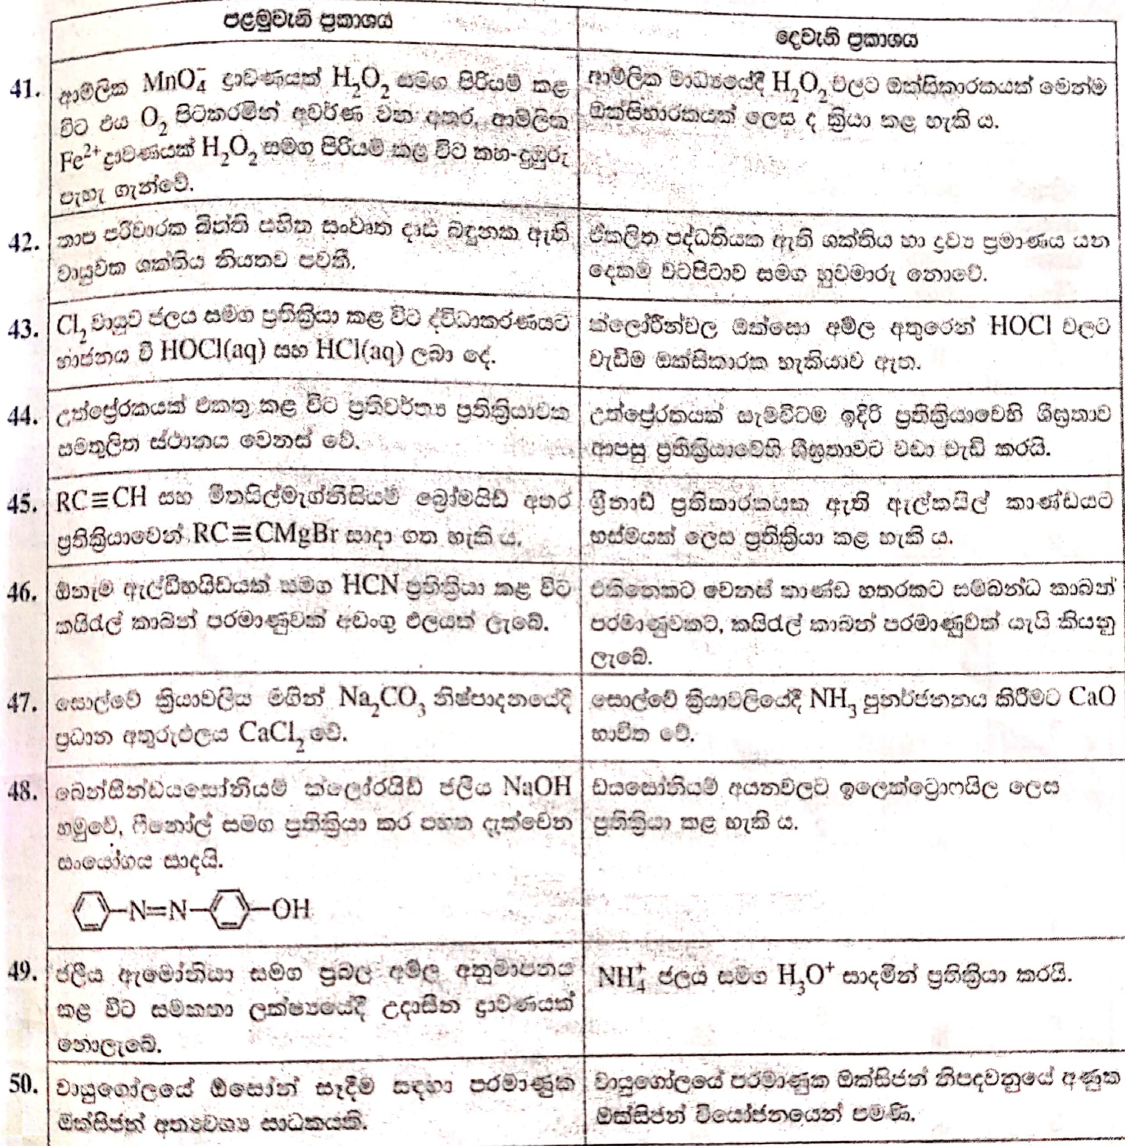 පළමුවැනි ප්‍රකාශය
දෙවැනි ප්‍රකාශය
41.
ආම්ලික MnO₄⁻ ද්‍රාවණයක් H₂O₂ සමග පිරියම් කළ
විට එය O₂ පිටකරමින් අවර්ණ වන අතර, ආම්ලික
Fe²⁺ ද්‍රාවණයක් H₂O₂ සමග පිරියම් කල විට කහ-දුඹුරු
පැහැ ගැන්වේ.
ආම්ලික මාධ්‍යයේදී H₂O₂ වලට ඔක්සිකාරකයක් මෙන්ම
ඔක්සිහාරකයක් ලෙස ද ක්‍රියා කළ හැකි ය.
42.
තාප පරිවාරක බිත්ති සහිත සංවෘත දෘඪ බඳුනක ඇති
වායුවක ශක්තිය නියතව පවතී.
ඒකලිත පද්ධතියක ඇති ශක්තිය හා ද්‍රව්‍ය ප්‍රමාණය යන
දෙකම වටපිටාව සමග හුවමාරු නොවේ.
43.
Cl₂ වායුව ජලය සමග ප්‍රතික්‍රියා කළ විට ද්විධාකරණයට
භාජනය වී HOCl(aq) සහ HCl(aq) ලබා දේ.
ක්ලෝරීන්වල ඔක්සො අම්ල අතුරෙන් HOCl වලට
වැඩිම ඔක්සිකාරක හැකියාව ඇත.
44.
උත්ප්‍රේරකයක් එකතු කළ විට ප්‍රතිවර්ත්‍ය ප්‍රතික්‍රියාවක
සමතුලිත ස්ථානය වෙනස් වේ.
උත්ප්‍රේරකයක් සැමවිටම ඉදිරි ප්‍රතික්‍රියාවෙහි ශීඝ්‍රතාව
ආපසු ප්‍රතික්‍රියාවේහි ශීඝ්‍රතාවට වඩා වැඩි කරයි.
45.
RC≡CH සහ මීතයිල්මැග්නීසියම් බ්‍රෝමයිඩ් අතර
ප්‍රතික්‍රියාවෙන් RC≡CMgBr සාදා ගත හැකි ය.
ග්‍රීනාඩ් ප්‍රතිකාරකයක ඇති ඇල්කයිල් කාණ්ඩයට
භස්මයක් ලෙස ප්‍රතික්‍රියා කළ හැකි ය.
46.
ඕනෑම ඇල්ඩිහයිඩයක් සමග HCN ප්‍රතික්‍රියා කළ විට
කයිරැල් කාබන් පරමාණුවක් අඩංගු ඵලයක් ලැබේ.
එකිනෙකට වෙනස් කාණ්ඩ හතරකට සම්බන්ධ කාබන්
පරමාණුවකට, කයිරැල් කාබන් පරමාණුවක් යැයි කියනු
ලැබේ.
47.
සොල්වේ ක්‍රියාවලිය මගින් Na₂CO₃ නිෂ්පාදනයේදී
ප්‍රධාන අතුරුඵලය CaCl₂ වේ.
සොල්වේ ක්‍රියාවලියේදී NH₃ පුනර්ජනනය කිරීමට CaO
භාවිත වේ.
48.
බෙන්සීන්ඩයසෝනියම් ක්ලෝරයිඩ් ජලීය NaOH
හමුවේ, ෆීනෝල් සමග ප්‍රතික්‍රියා කර පහත දැක්වෙන
සංයෝගය සාදයි.
N=N OH
ඩයසෝනියම් අයනවලට ඉලෙක්ට්‍රොෆයිල ලෙස
ප්‍රතික්‍රියා කළ හැකි ය.
49.
ජලීය ඇමෝනියා සමග ප්‍රබල අම්ල අනුමාපනය
කළ විට සමකතා ලක්ෂ්‍යයේදී උදාසීන ද්‍රාවණයක්
නොලැබේ.
NH₄⁺ ජලය සමග H₃O⁺ සාදමින් ප්‍රතික්‍රියා කරයි.
50.
වායුගෝලයේ ඕසෝන් සෑදීම සඳහා පරමාණුක
ඔක්සිජන් අත්‍යවශ්‍ය සාධකයකි.
වායුගෝලයේ පරමාණුක ඔක්සිජන් නිපදවනුයේ අණුක
ඔක්සිජන් වියෝජනයෙන් පමණි.